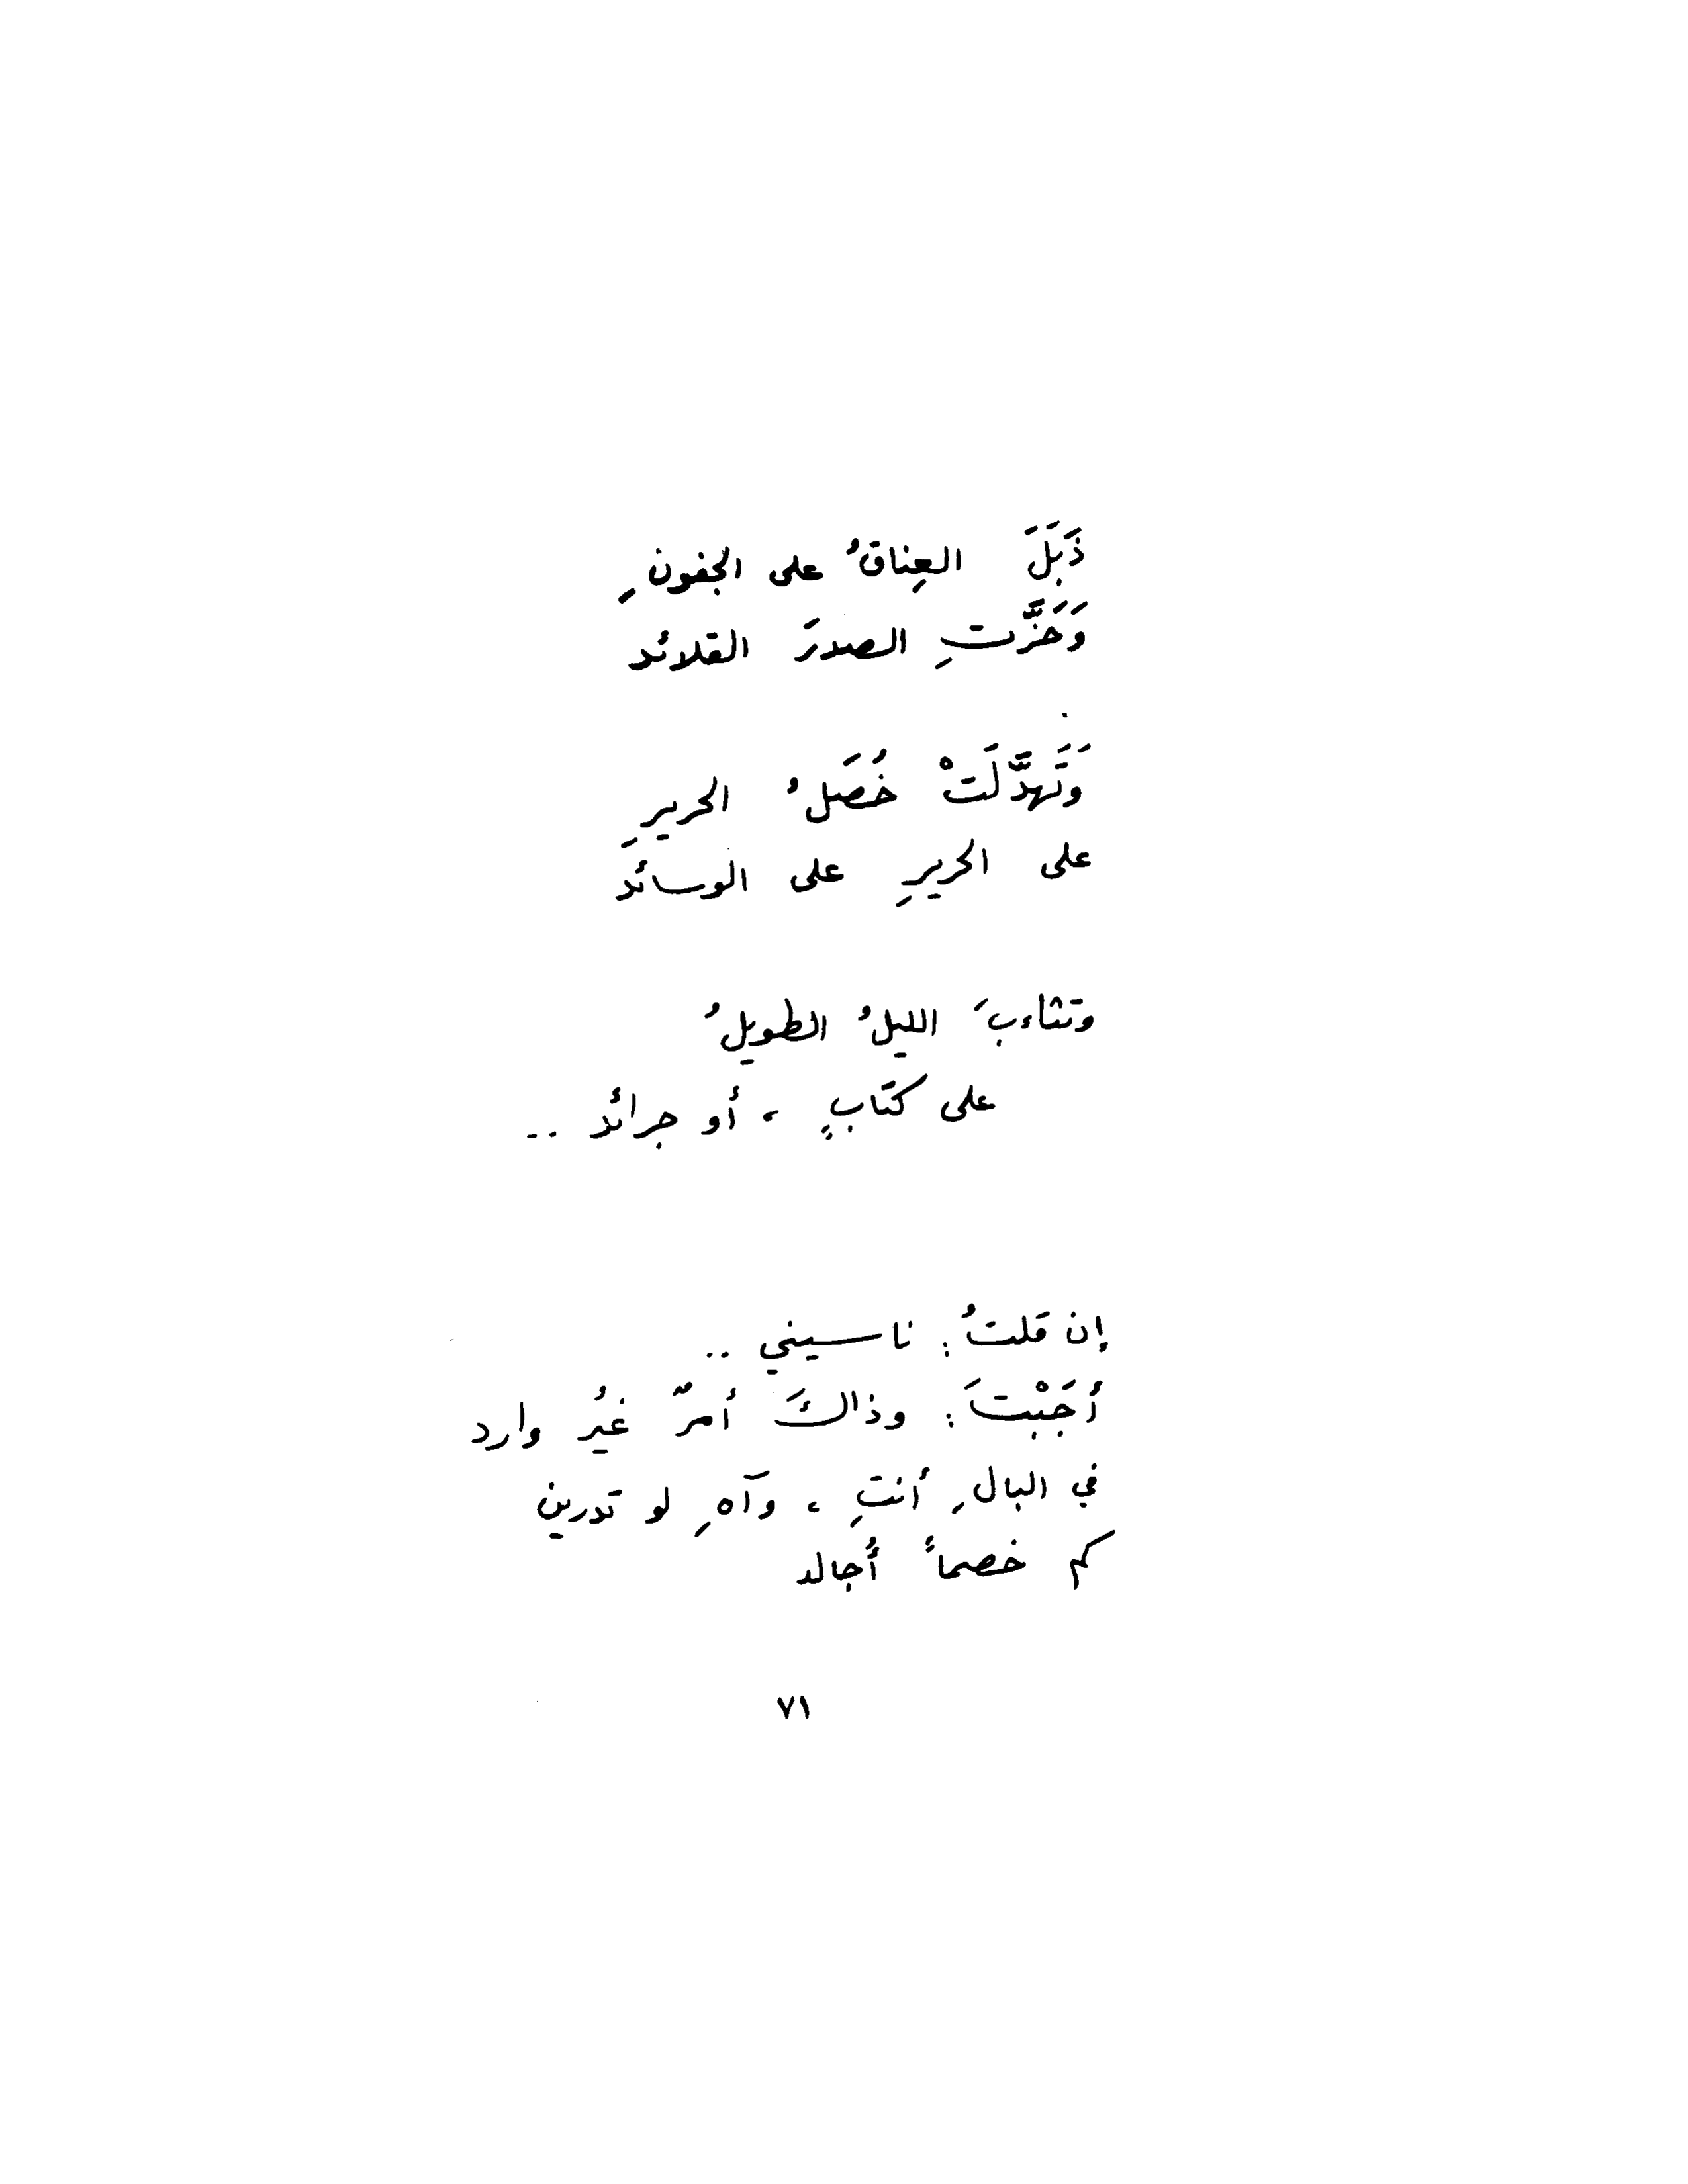 ذَبَلَ العِناقُ على الجفونِ
وَحَزَّتِ الصدرَ القلائد
وَتَهدَّلَتْ خُصَلُ الحريرِ
على الحريرِ على الوسائدَ
وتثاءبَ الليلُ الطويلُ
على كتَابٍ ، أو جرائد ..
إن قلتُ : ناسيني ..
أجَبْتَ : وذاكَ أمرٌ غيُر وارد
في البالِ أنتِ ، وآهِ لو تدرين
كم خصماً أُجالد
٧١